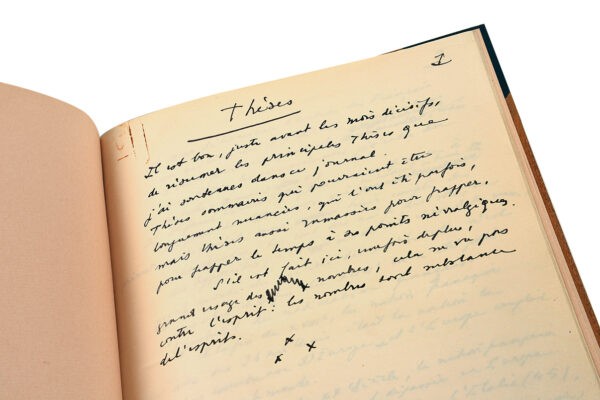 I
Thèses
Il est bon, juste avant les mois décisifs,
de résumer les principales Thèses que
j'ai soutenues dans ce journal.
Thèses sommaires qui pourraient être
longuement nuancées, qui l'ont été parfois,
mais thèses aussi ramassées pour frapper,
pour frapper le temps à ses points névralgiques.
S'il est fait ici, une fois de plus,
grand usage des nombres, cela ne va pas
contre l'esprit : les nombres sont substance
de l'esprit.
x
x x